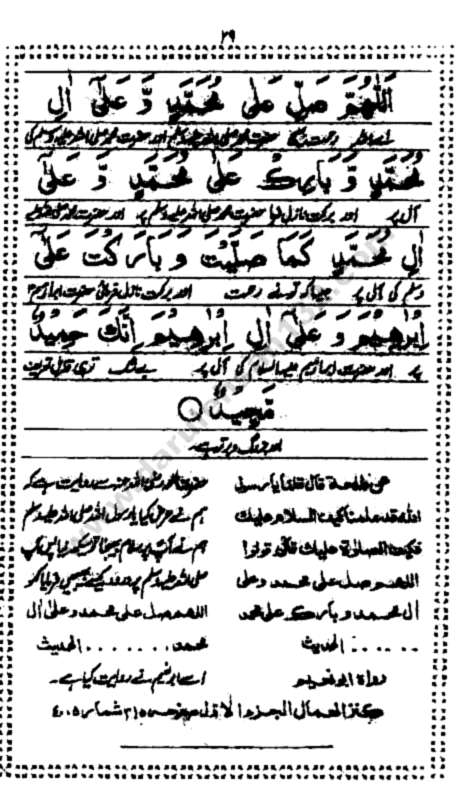 ۲۹
اَللّٰهُمَّ صَلِّ عَلٰى مُحَمَّدٍ وَّ عَلٰٓى اٰلِ
اے اللہ رحمت حضرت محمد صلی اللہ علیہ وسلم اور حضرت محمد صلی اللہ علیہ وسلم کی
مُحَمَّدٍ وَّ بَارِكْ عَلٰى مُحَمَّدٍ وَّ عَلٰٓى
آل پر اور برکت نازل فرما حضرت محمد صلی اللہ علیہ وسلم پر اور حضرت محمد صلی اللہ علیہ
اٰلِ مُحَمَّدٍ كَمَا صَلَّيْتَ وَ بَارَكْتَ عَلٰٓى
وسلم کی آل پر جیسا کہ تو نے رحمت اور برکت نازل فرمائی حضرت ابراہیم
اِبْرٰهِيْمَ وَ عَلٰٓى اٰلِ اِبْرٰهِيْمَ اِنَّكَ حَمِيْدٌ
پر اور حضرت ابراہیم علیہ السلام کی آل پر بے شک تو ہی قابل تعریف
مَّجِيْدٌ ○
اور بزرگ و برتر ہے۔
عن طلحة قال قلنا يا رسول
الله قد علمنا كيف السلام عليك
فكيف الصلوة عليك قال قولوا
اللهم صل على محمد وعلى
آل محمد و بارك على محمد
...... الحديث
رواه ابو نعيم
حضرت طلحہ رضی اللہ عنہ سے روایت ہے کہ
ہم نے عرض کیا یا رسول اللہ صلی اللہ علیہ وسلم
ہم نے آپ پر سلام بھیجنا
صلی اللہ علیہ وسلم پر درود کیسے بھیجیں فرمایا کہو
اللهم صل على محمد و على ال
محمد ........ الحديث
اسے ابو نعیم نے روایت کیا ہے۔
كنز العمال الجزء الاول صفحه